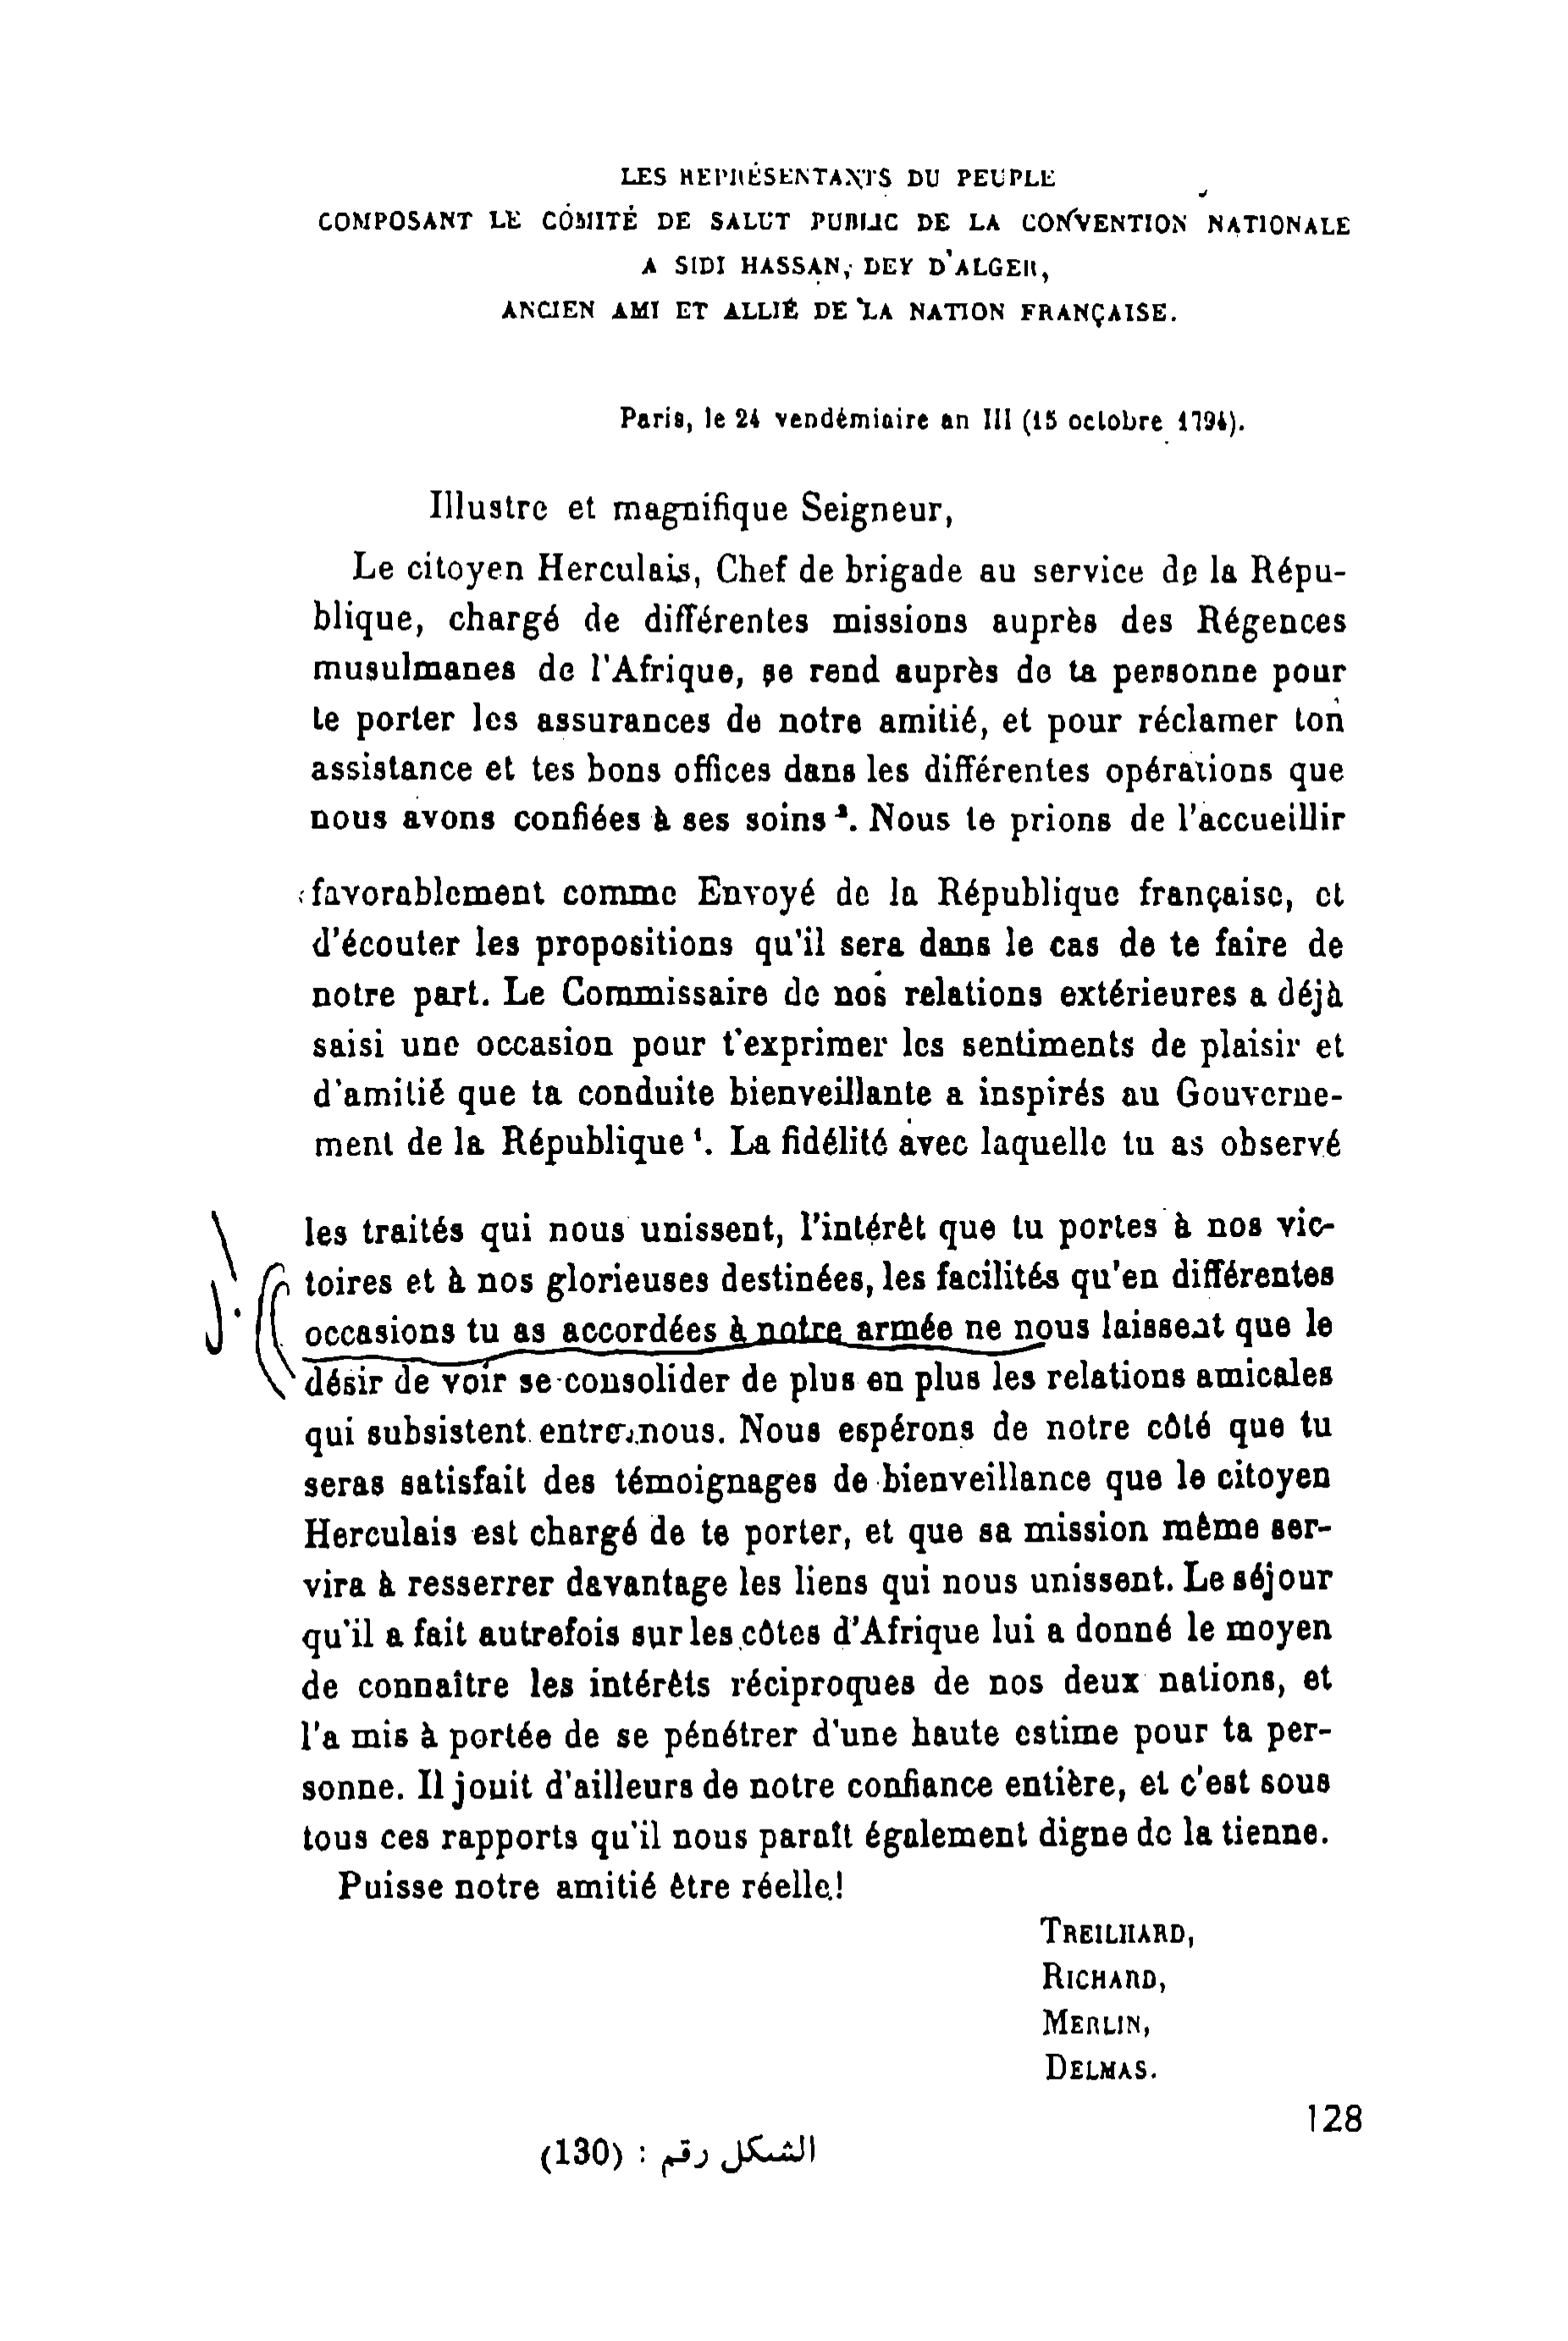 LES REPRÉSENTANTS DU PEUPLE
COMPOSANT LE COMITÉ DE SALUT PUBLIC DE LA CONVENTION NATIONALE
A SIDI HASSAN, DEY D'ALGER,
ANCIEN AMI ET ALLIÉ DE LA NATION FRANÇAISE.
Paris, le 24 vendémiaire an III (15 octobre 1794).
Illustre et magnifique Seigneur,
Le citoyen Herculais, Chef de brigade au service de la Répu-
blique, chargé de différentes missions auprès des Régences
musulmanes de l'Afrique, se rend auprès de ta personne pour
te porter les assurances de notre amitié, et pour réclamer ton
assistance et tes bons offices dans les différentes opérations que
nous avons confiées à ses soins ². Nous te prions de l'accueillir
favorablement comme Envoyé de la République française, et
d'écouter les propositions qu'il sera dans le cas de te faire de
notre part. Le Commissaire de nos relations extérieures a déjà
saisi une occasion pour t'exprimer les sentiments de plaisir et
d'amitié que ta conduite bienveillante a inspirés au Gouverne-
ment de la République ¹. La fidélité avec laquelle tu as observé
les traités qui nous unissent, l'intérêt que tu portes à nos vic-
toires et à nos glorieuses destinées, les facilités qu'en différentes
occasions tu as accordées à notre armée ne nous laissent que le
désir de voir se consolider de plus en plus les relations amicales
qui subsistent entre nous. Nous espérons de notre côté que tu
seras satisfait des témoignages de bienveillance que le citoyen
Herculais est chargé de te porter, et que sa mission même ser-
vira à resserrer davantage les liens qui nous unissent. Le séjour
qu'il a fait autrefois sur les côtes d'Afrique lui a donné le moyen
de connaître les intérêts réciproques de nos deux nations, et
l'a mis à portée de se pénétrer d'une haute estime pour ta per-
sonne. Il jouit d'ailleurs de notre confiance entière, et c'est sous
tous ces rapports qu'il nous paraît également digne de la tienne.
Puisse notre amitié être réelle!
TREILHARD,
RICHARD,
MERLIN,
DELMAS.
128
الشكل رقم : (130)